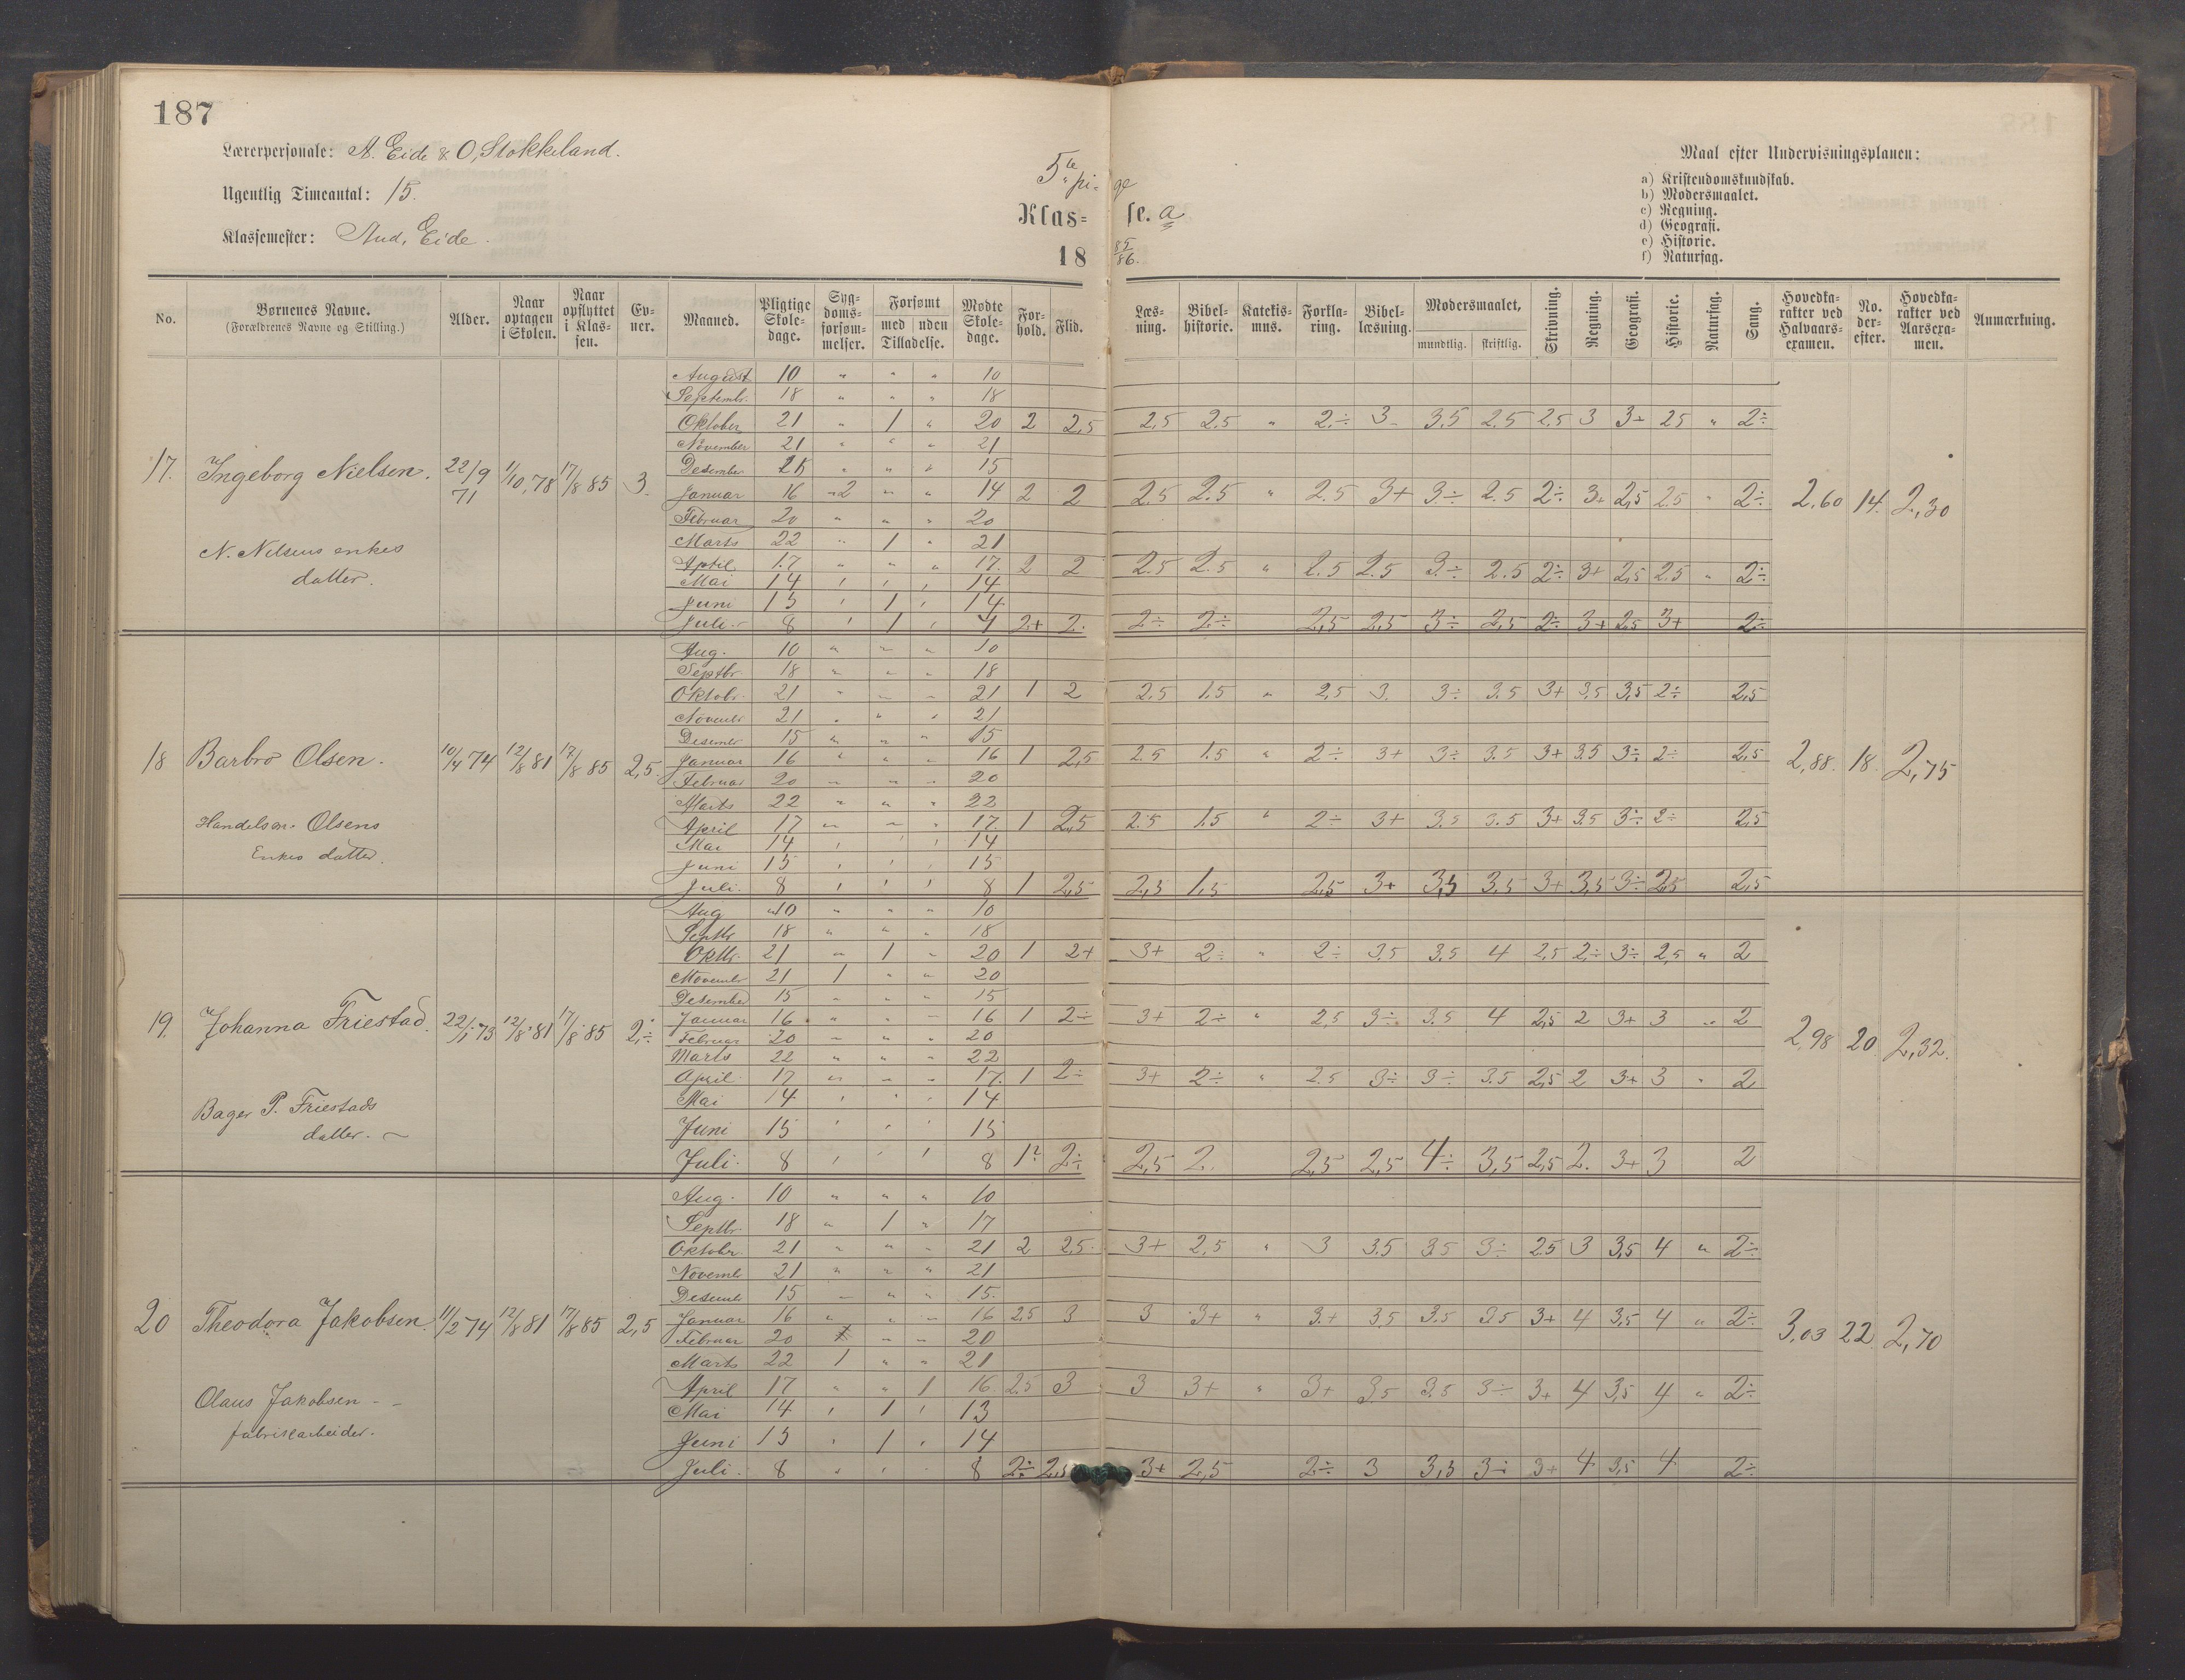 187
Lærerpersonale: A. Eide & O, Stokkeland.
Ugentlig Timeantal: 15.
Klassemester: And. Eide.
5te pi- ge
Klas- se. a
18 85/86.
Maal efter Undervisningsplanen:
a) Kristendomskundskab.
b) Modersmaalet.
c) Regning.
d) Geografi.
e) Historie.
f) Naturfag.
No. Børnenes Navne. (Forældrenes Navne og Stilling.) Alder. Naar optagen i Skolen. Naar opflyttet i Klas- sen. Ev- ner. Maaned. Pligtige Skole- dage. Syg- doms- forsøm- melser. Forsømt med uden Tilladelse. Mødte Skole- dage. For- hold. Flid. Læs- ning. Bibel- historie. Katekis- mus. Forkla- ring. Bibel- læsning. Modersmaalet, mundtlig. skriftlig. Skrivning. Regning. Geografi. Historie. Naturfag. Sang. Hovedka- rakter ved Halvaars- examen. No. der- efter. Hovedka- rakter ved Aarsexa- men. Anmærkning.
August 10 " " " 10
Septembr. 18 " " " 18
Oktober 21 " 1 " 20 2 2,5 2,5 2.5 " 2.÷ 3 3.5 2.5 2.5 3 3+ 25 " 2÷
November 21 " " " 21
Desember 15 " " " 15
17. Ingeborg Nielsen. 22/9 71 1/10,78 17/8 85 3. 2,60 14. 2,30
Januar 16 2 " " 14 2 2 2.5 2.5 " 2.5 3+ 3÷ 2.5 2÷ 3+ 2,5 2.5 " 2÷
Februar 20 " " " 20
Marts 22 " 1 " 21
N. Nilsens enkes
datter.
April 17 " " " 17. 2 2 2.5 2.5 " 2.5 2.5 3.÷ 2.5 2÷ 3+ 2,5 2.5 " 2÷
Mai 14 " " " 14
Juni 15 " 1 " 14
Juli 8 " 1 " 7 2+ 2. 2÷ 2÷ 2,5 2,5 3÷ 2,5 2÷ 3+ 2,5 3+ 2÷
Aug. 10 " " " 10
Septbr 18 " " " 18
Oktobr. 21 " " " 21 1 2 2.5 1.5 " 2,5 3. 3÷ 3.5 3+ 3,5 3,5 2÷ 2,5
Novembr 21 " " " 21
Desembr 15 " " " 15
18 Barbro Olsen. 10/4 74 12/8 81 17/8 85 2,5. 2,88. 18. 2,75
Januar 16 " " " 16 1 2,5 2.5 1.5 " 2÷ 3+ 3÷ 3.5 3+ 3.5 3÷ 2÷ 2,5
Februar 20 " " " 20
Marts 22 " " " 22
Handelsm. Olsens
Enkes datter.
April 17 " " " 17. 1 2,5 2.5 1.5 " 2÷ 3+ 3.5 3.5 3+ 3.5 3÷ 2÷ 2,5
Mai 14 " " " 14
Juni 15 " " " 15
Juli. 8 " " " 8 1 2,5 2,5 1,5 2,5 3+ 3,5 3,5 3+ 3,5 3÷ 2,5 2,5
Aug 10 " " " 10
Septbr 18 " " " 18
Oktbr. 21 " 1 " 20 1 2+ 3+ 2÷ " 2÷ 3.5 3.5 4 2,5 2÷ 3÷ 2,5 " 2
Novembr 21 1 " " 20
Desember 15 " " " 15
19. Johanna Friestad. 22/1 73 12/8 81 17/8 85 2,÷ 2,98 20 2,32.
Januar 16 " " " 16 1 2÷ 3+ 2÷ " 2,5 3÷ 3.5 4 2,5 2 3+ 3 " 2
Februar 20 " " " 20
Marts 22 " " " 22
April 17 " " " 17. 1 2÷ 3+ 2÷ " 2.5 3÷ 3÷ 3.5 2,5 2 3+ 3 " 2
Bager P. Friestads
datter.
Mai 14 " " " 14
Juni 15 " " " 15
Juli. 8 " " " 8 1 2÷ 2,5 2. 2,5 2,5 4÷ 3,5 2,5 2. 3+ 3 2
Aug. 10 " " " 10
Septbr. 18 " 1 " 17
Oktober. 21 " " " 21 2 2,5. 3+ 2,5 " 3 3.5 3.5 3÷ 2.5 3 3,5 4 " 2÷
Novembr 21 " " " 21
Desembr 15 " " " 15.
20 Theodora Jakobsen. 11/2 74 12/8 81 17/8 85 2,5 3,03 22. 2,70
Januar 16 " " " 16 2.5 3 3 3+ " 3.+ 3,5 3.5 3.5 3+ 4 3,5 4 " 2÷
Februar 20 " " 20
Marts 22 1 " " 21
April 17 " " 1 16 2.5 3 3 3+ " 3+ 3,5 3.5 3÷ 3+ 4 3,5 4 " 2÷
Olaus Jakobsen - -
fabrikarbeider.
Mai 14 " 1 " 13
Juni 15 " 1 " 14
Juli. 8 " " " 8 2÷ 2,5 3+ 2,5 2÷ 3 3,5 3÷ 3+ 4 3,5 4 2÷